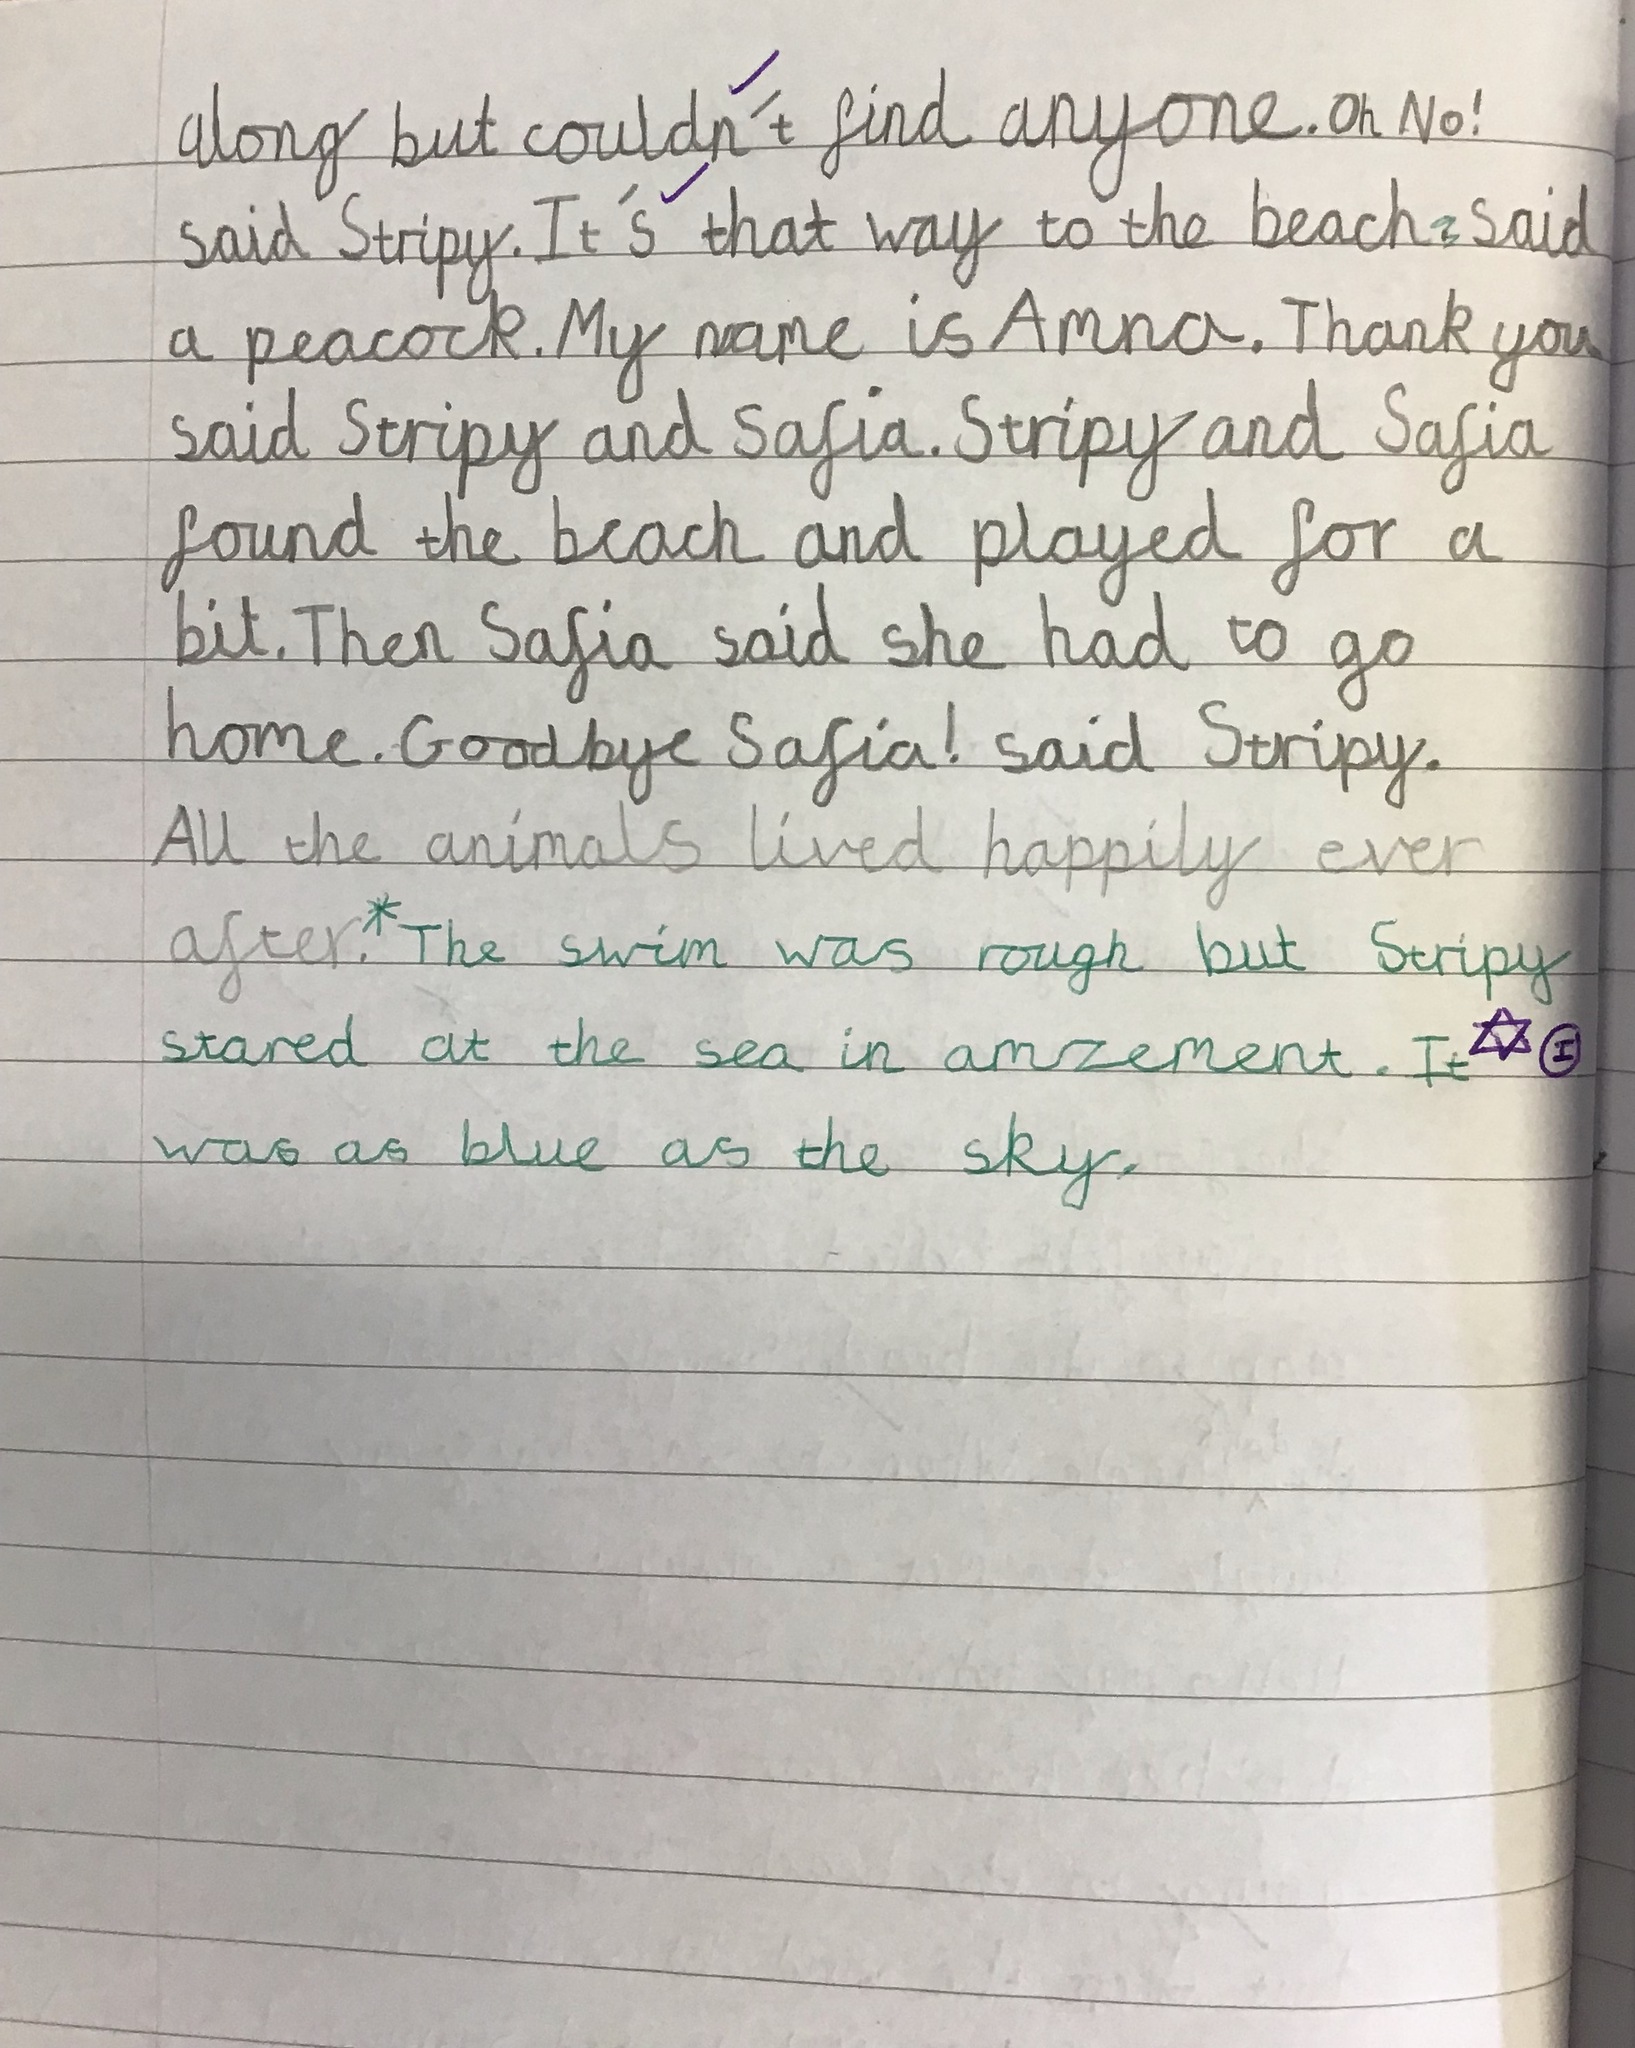 along but couldn't find anyone. Oh No!
said Stripy. It's that way to the beach? said
a peacock. My name is Amna. Thank you
said Stripy and Safia. Stripy and Safia
found the beach and played for a
bit. Then Safia said she had to go
home. Goodbye Safia! said Stripy.
All the animals lived happily ever
after.* The swim was rough but Stripy
stared at the sea in amzement. It I
was as blue as the sky.